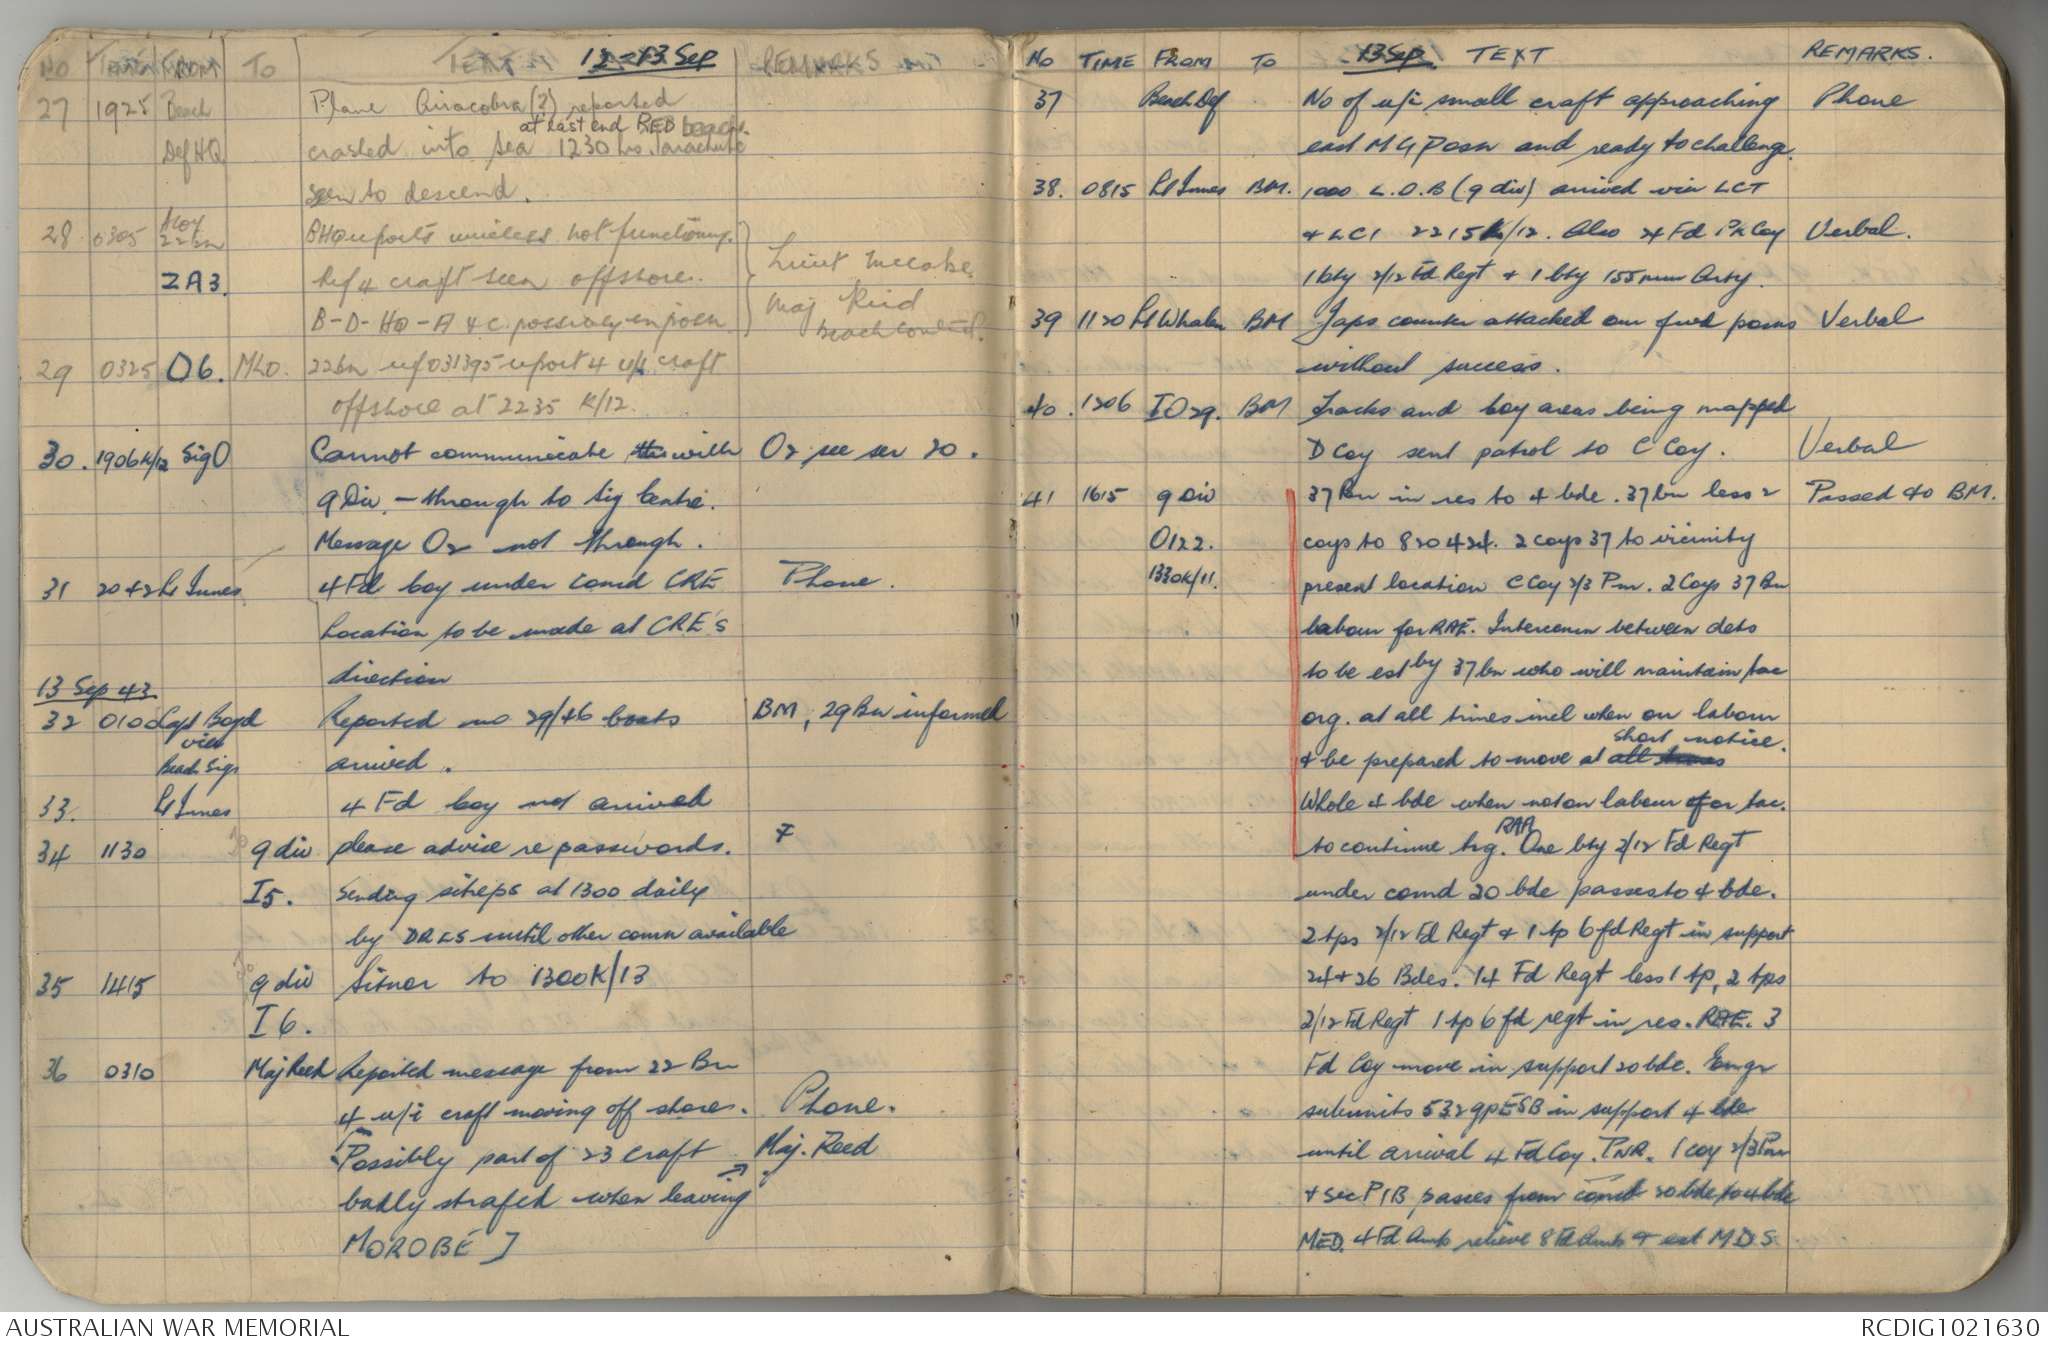 No TIME FROM To TEXT 12-13 Sep REMARKS
27 1925 Beach Plane Airacobra (?) reported
at east end RED beach.
Def HQ crashed into sea 1230 hrs. Parachute
seen to descend.
28 0305 A Coy 22 Bn BHQ reports wireless not functioning.
ZA3. Ref 4 craft seen offshore. Lieut McCabe
B-D-HQ-A & C possibly in posn. Maj Reid
Beach Control.
29 0325 O6. MLO. 22 Bn ref 031395 report 4 u/i craft
offshore at 2235 K/12.
30. 1906K/12 Sig O Cannot communicate with O2 see ser 20.
9 Div. - through to Sig Centre.
Message O2 not through.
31 2042 Lt Innes 4 Fd Coy under comd CRE Phone.
Location to be made at CRE's
direction
13 Sep 43
32 0100 Capt Boyd Reported no 29/46 boats BM, 29 Bn informed
via
Beach Sigs arrived.
33. Lt Innes 4 Fd Coy not arrived
34 1130 To 9 div please advise re passwords. F
I5. Sending sitreps at 1300 daily
by DRLS until other comn available
35 1415 To 9 div Sitrep to 1300K/13
I6.
36 0310 Maj Reed Reported message from 22 Bn
4 u/i craft moving off shore. Phone.
[Possibly part of 23 craft Maj. Reed
badly strafed when leaving
MOROBE]
No TIME FROM To 13 Sep TEXT REMARKS.
37 Beach Def No of u/i small craft approaching Phone
east MG Posn and ready to challenge.
38. 0815 Lt Innes BM. 1000 L.O.B (9 div) arrived via LCT
& LCI 2215K/12. Also 24 Fd Pk Coy Verbal.
1 bty 2/12 Fd Regt & 1 bty 155mm Arty.
39 1120 Lt Whalen BM Japs counter attacked our fwd posns Verbal
without success.
40. 1206 IO 29. BM Tracks and coy areas being mapped
D Coy sent patrol to C Coy. Verbal
41 1615 9 Div 37 Bn in res to 4 bde. 37 bn less 2 Passed to BM.
O122. coys to 820424. 2 coys 37 to vicinity
1330K/11. present location C Coy 2/3 Pnr. 2 Coys 37 Bn
labour for RAE. Intercomm between dets
to be est by 37 bn who will maintain tac
org. at all times incl when on labour
short notice.
& be prepared to move at all times
Whole 4 bde when not on labour or for tac.
to continue trg. RAA One bty 2/12 Fd Regt
under comd 20 bde passes to 4 bde.
2 tps 2/12 Fd Regt & 1 tp 6 fd Regt in support
24 & 26 Bdes. 14 Fd Regt less 1 tp, 2 tps
2/12 Fd Regt 1 tp 6 fd regt in res. RAE. 3
Fd Coy move in support 20 bde. Engr
subunits 532 gp ESB in support 4 bde
until arrival 4 Fd Coy. PNR. 1 coy 2/3 Pnr
& Sec PIB passes from comd 20 bde to 4 bde
MED. 4 Fd Amb relieve 8 Fd Amb & est MDS.
AUSTRALIAN WAR MEMORIAL RCDIG1021630